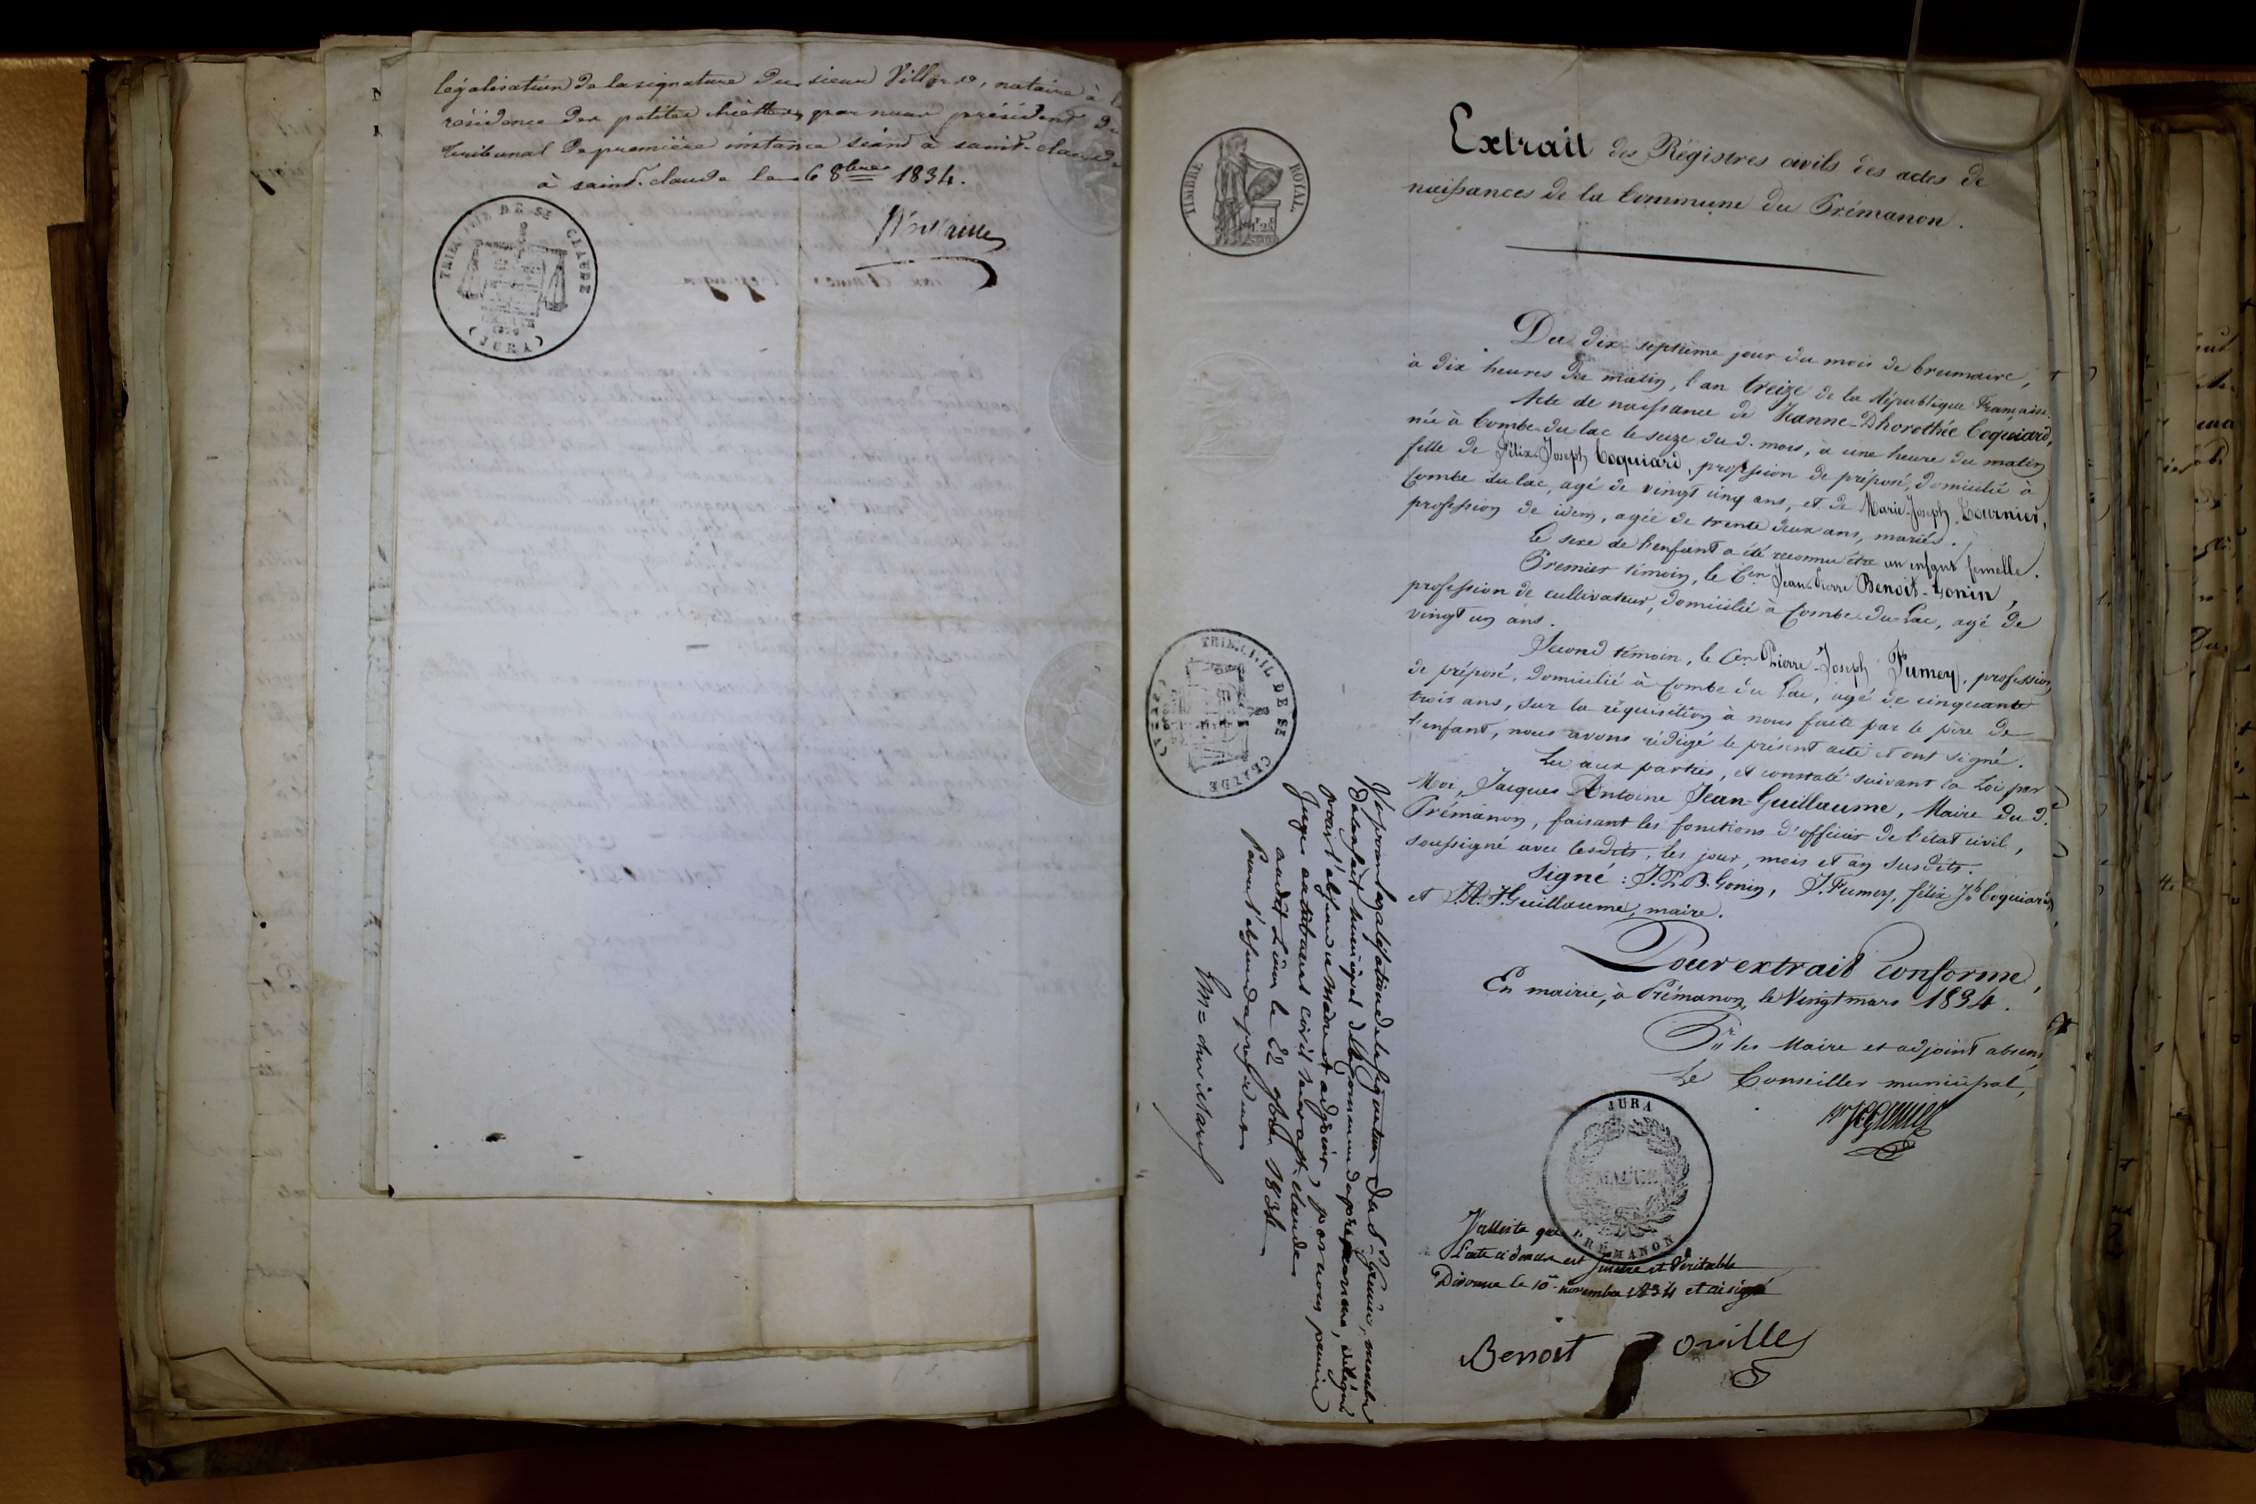 légalisation de la signature du sieur Villard, notaire à la
résidence des petites chiettes, par nous président du
tribunal de première instance séant à saint-claude
à saint-claude le 6 8bre 1834.
TRIB. CIVIL DE ST CLAUDE
(JURA)
TIMBRE ROYAL.
Extrait des Régistres civils des actes de
naissances de la Commune du Prémanon.
Du dix septième jour du mois de brumaire,
à dix heures du matin, l'an treize de la République Française.
Acte de naissance de Jeanne-Dhorothée Coquiard,
née à Combe du lac le seize du d. mois, à une heure du matin
fille de Félix-Joseph Coquiard, profession de préposé, domicilié à
Combe du lac, agé de vingt cinq ans, et de Marie-Joseph Tournier,
profession de idem, agée de trente deux ans, mariés.
Le sexe de l'enfant a été reconnu être un enfant femelle.
Premier témoin, le Cen Jean-Pierre Benoit-Gonin,
profession de cultivateur, domicilié à Combe du Lac, agé de
vingt un ans.
Second témoin, le Cen Pierre-Joseph Fumey, profession
de préposé, domicilié à Combe du Lac, agé de cinquante
trois ans, sur la réquisition à nous faite par le père de
l'enfant, nous avons rédigé le présent acte et ont signé.
Lu aux parties, et constaté suivant la Loi par
Moi, Jacques Antoine Jean-Guillaume, Maire du d.
Prémanon, faisant les fonctions d'officier de l'état civil,
soussigné avec lesdits, les jour, mois et an susdits.
Signé : J.P.B. Gonin, J. Fumey, félix Jh Coquiard,
et J.A.J. Guillaume, maire.
Pour extrait conforme,
En mairie, à Prémanon, le Vingt mars 1834.
Pr les Maire et adjoint absens,
Le Conseiller municipal,
JURA
MAIRIE
PRÉMANON
J'atteste que
l'acte ci dessus est sincère et Véritable
Divonne le 10 novembre 1834 et ai signé
Benoit
TRIB. CIVIL DE ST CLAUDE
(JURA)
Vu pour légalisation de la signature du Sr membre
du conseil municipal de la commune de prémanon, délégué
pour l'absence du Maire et adjoint, par nous premier
Juge au tribunal civil séant à St. claude
audit lieu le 22 1834
Pour l'absence du président